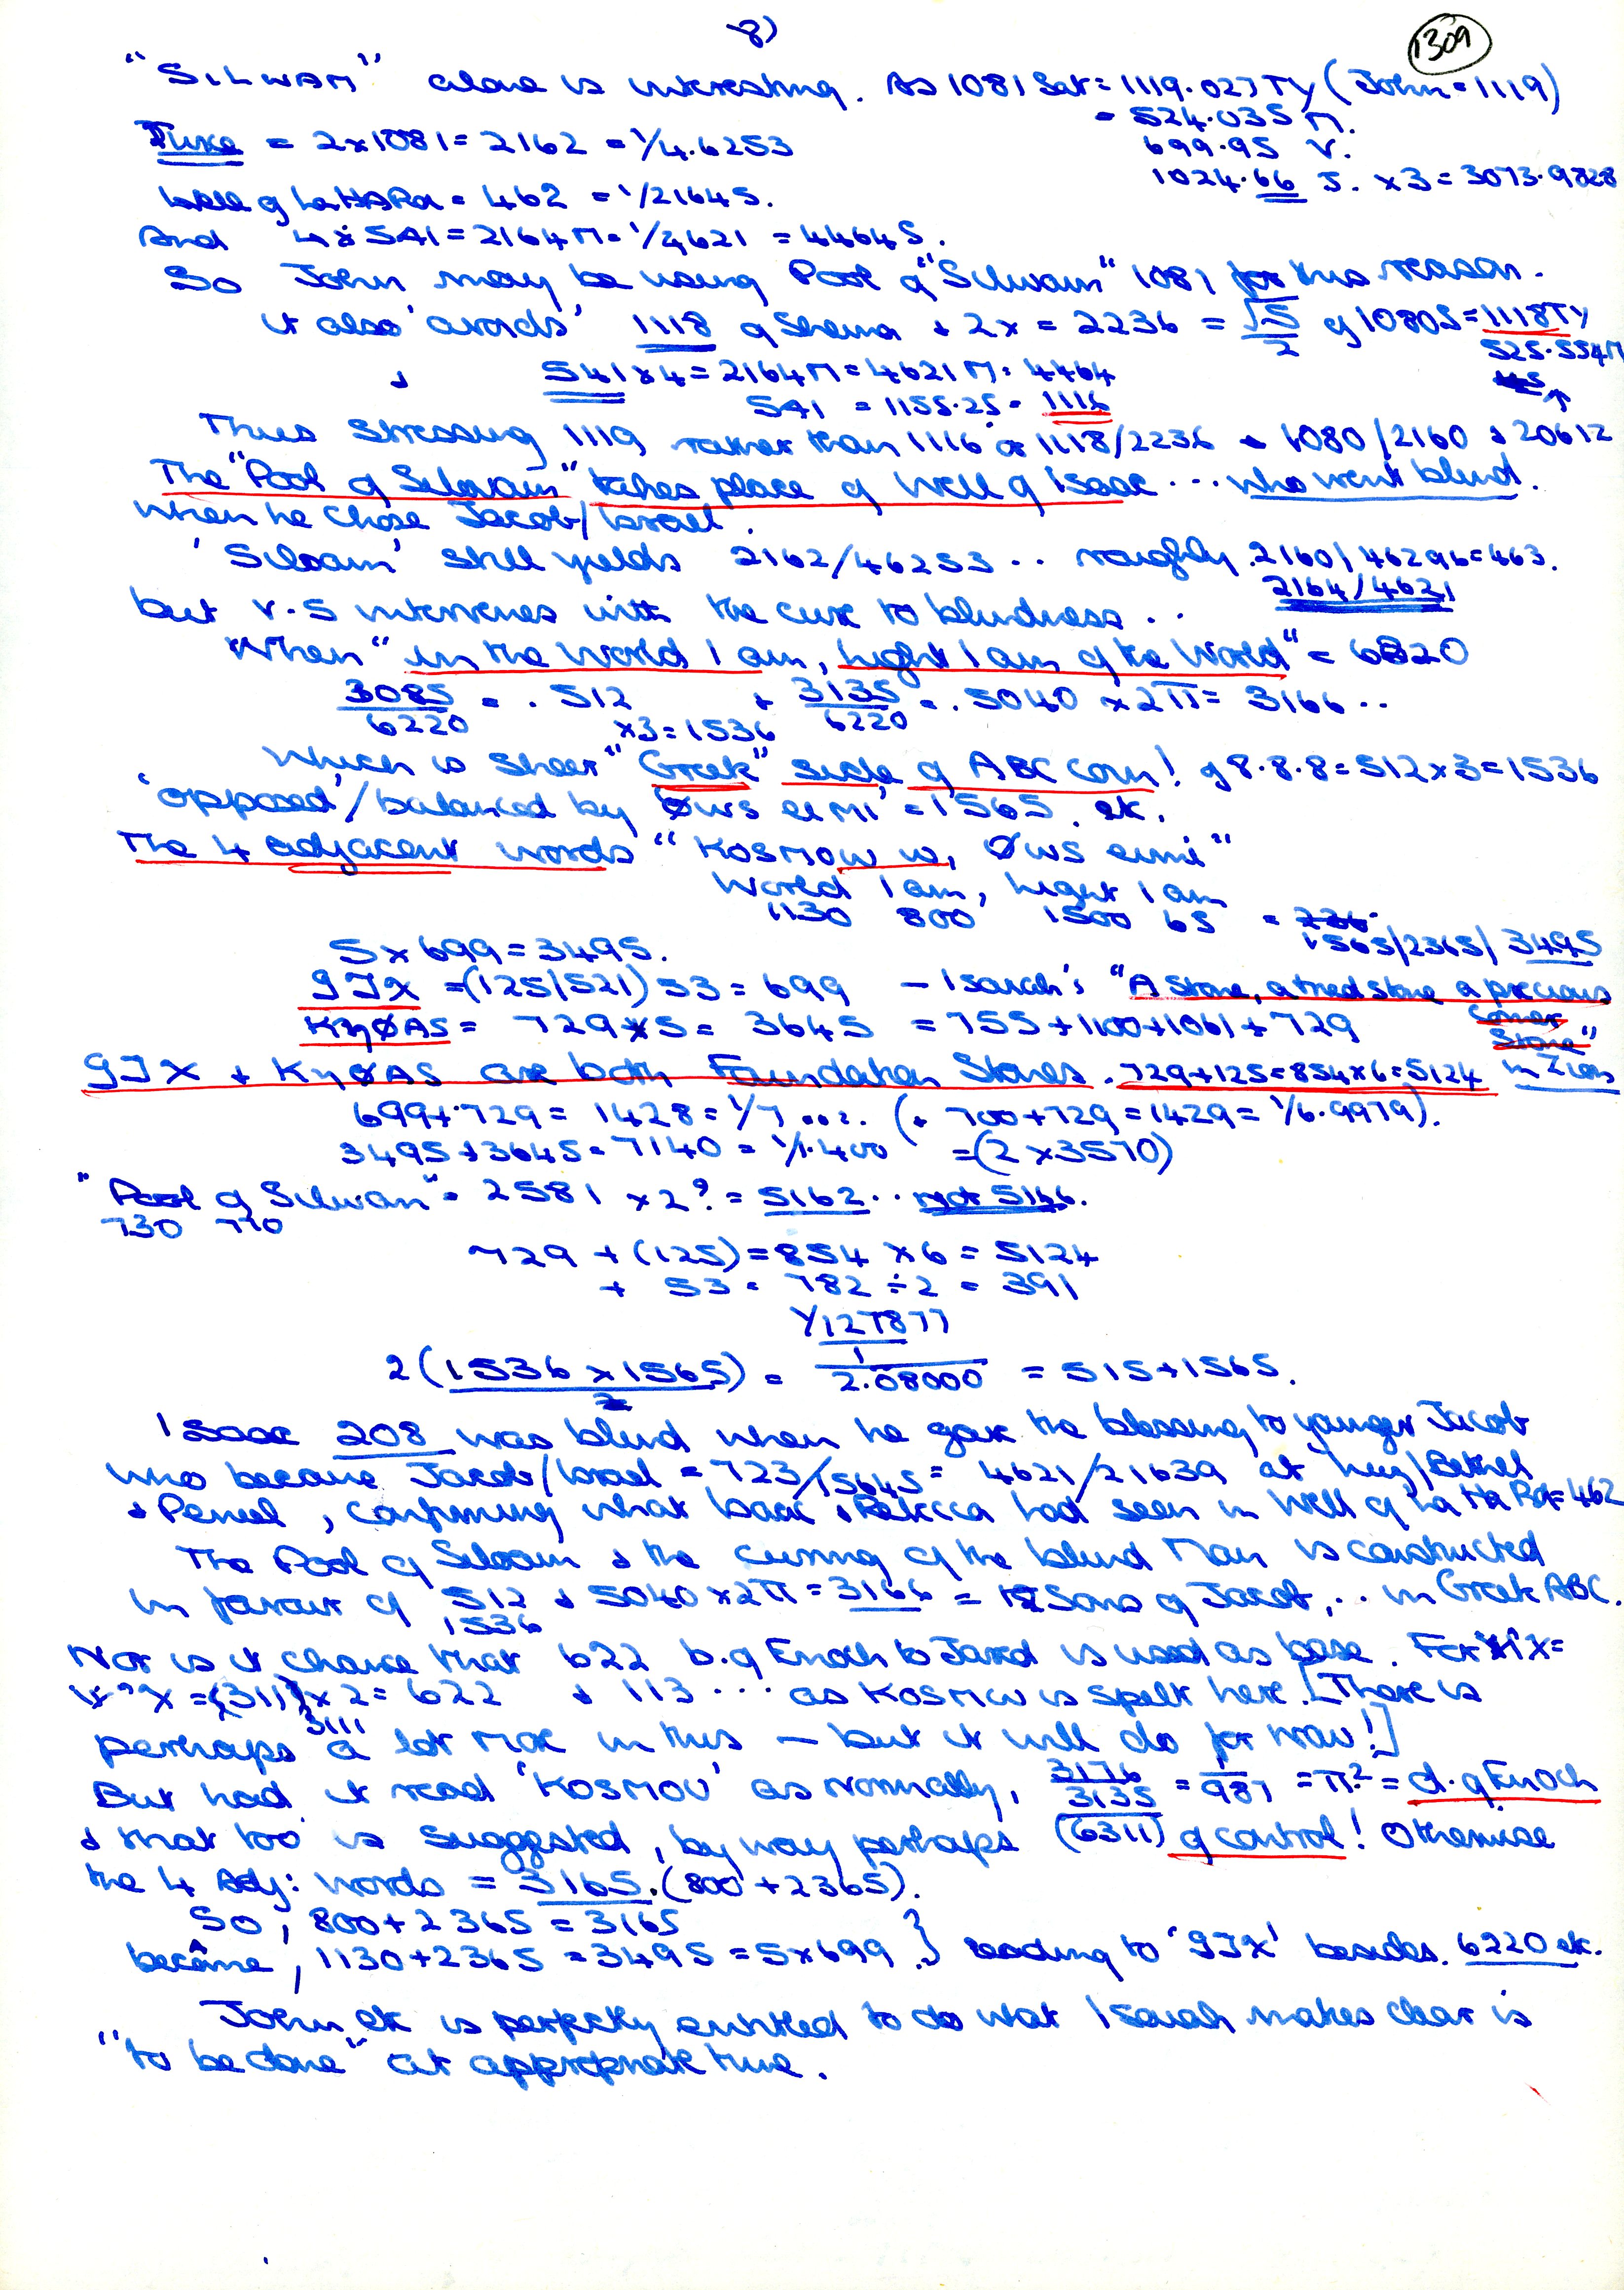 8)
1309
"SILWAM" alone is interesting. As 1081 Sat = 1119.027 TY (John = 1119)
= 524.035 M.
Twice = 2x1081 = 2162 = 1/4.6253
699.95 V.
1024.66 J. x3 = 3073.9828
Well of LaHaRoi = 462 = 1/21645.
And 4 x 541 = 2164 M = 1/4621 = 4464 S.
So John may be using Pool of "Silwam" 1081 for this reason.
It also 'avoids' 1118 of Shema + 2x = 2236 = √5/2 of 1080S = 1118TY
525.554M
+ 541x4 = 2164M = 4621 M = 4464
541 = 1155.25 = 1116
Thus stressing 1119 rather than 1116 or 1118/2236 + 1080/2160 + 20612
The "Pool of Silwam" takes place of Well of Isaac ... who went blind.
When he chose Jacob/Israel.
'Siloam' still yields 2162/46253 .. roughly 2160/46296 = 463.
2164/4621
but V.S intervenes with the cure to blindness ..
When "in the World I am, Light I am of the World" = 6220
3085/6220 = .512 + 3135/6220 = .5040 x 2π = 3166 ..
x3 = 1536
Which is sheer "Greek" side of ABC coin! of 8.8.8 = 512x3 = 1536
'opposed'/balanced by 'Øws eimi' = 1565. etc.
The 4 adjacent words "Kosmow w, Øws eimi"
World I am, Light I am
1130 800 1500 65
1565/2365/3495
5 x 699 = 3495.
= (125/521) 53 = 699 - Isaiah's "A Stone, a tried stone a precious
Corner
Stone"
KηØAS = 729 x 5 = 3645 = 755+1100+1061+729
+ KηØAS are both Foundation Stones. 729+125=854x6=5124 in Zion
699+729 = 1428 = 1/7 .... (+ 700+729 = 1429 = 1/6.9979).
3495+3645 = 7140 = 1/1.400 = (2 x 3570)
"Pool of Silwam" = 2581 x 2? = 5162 .. not 5166.
730 770
729 + (125) = 854 x 6 = 5124
+ 53 = 782 ÷ 2 = 391
1/127877
2(1536 x 1565)/2 = 1/2.08000 = 515+1565.
Isaac 208 was blind when he gave the blessing to younger Jacob
who became Jacob/Israel = 723/15645 = 4621/21639 at Luz/Bethel
+ Penuel, confirming what Isaac + Rebecca had seen in Well of La Ha Roi = 462
The Pool of Siloam + the curing of the blind Man is constructed
in favour of 512 + 5040 x 2π = 3166 = 12 Sons of Jacob, .. in Greek ABC.
1536
Nor is it chance that 622 b. of Enoch to Jared is used as base. For
= (311) x 2 = 622 + 113 ... as Kosmow is spelt here. [There is
3111
perhaps a lot more in this — but it will do for now!]
But had it read 'KOSMOU' as normally, 3176/3135 = 1/987 = π² = d. of Enoch
+ that too is suggested, by way perhaps (6311) of control! Otherwise
the 4 Adj: words = 3165. (800 + 2365).
So, 800 + 2365 = 3165
became, 1130 + 2365 = 3495 = 5x699 } leading to besides. 6220 etc.
John etc is perfectly entitled to do what Isaiah makes clear is
"to be done" at appropriate time.